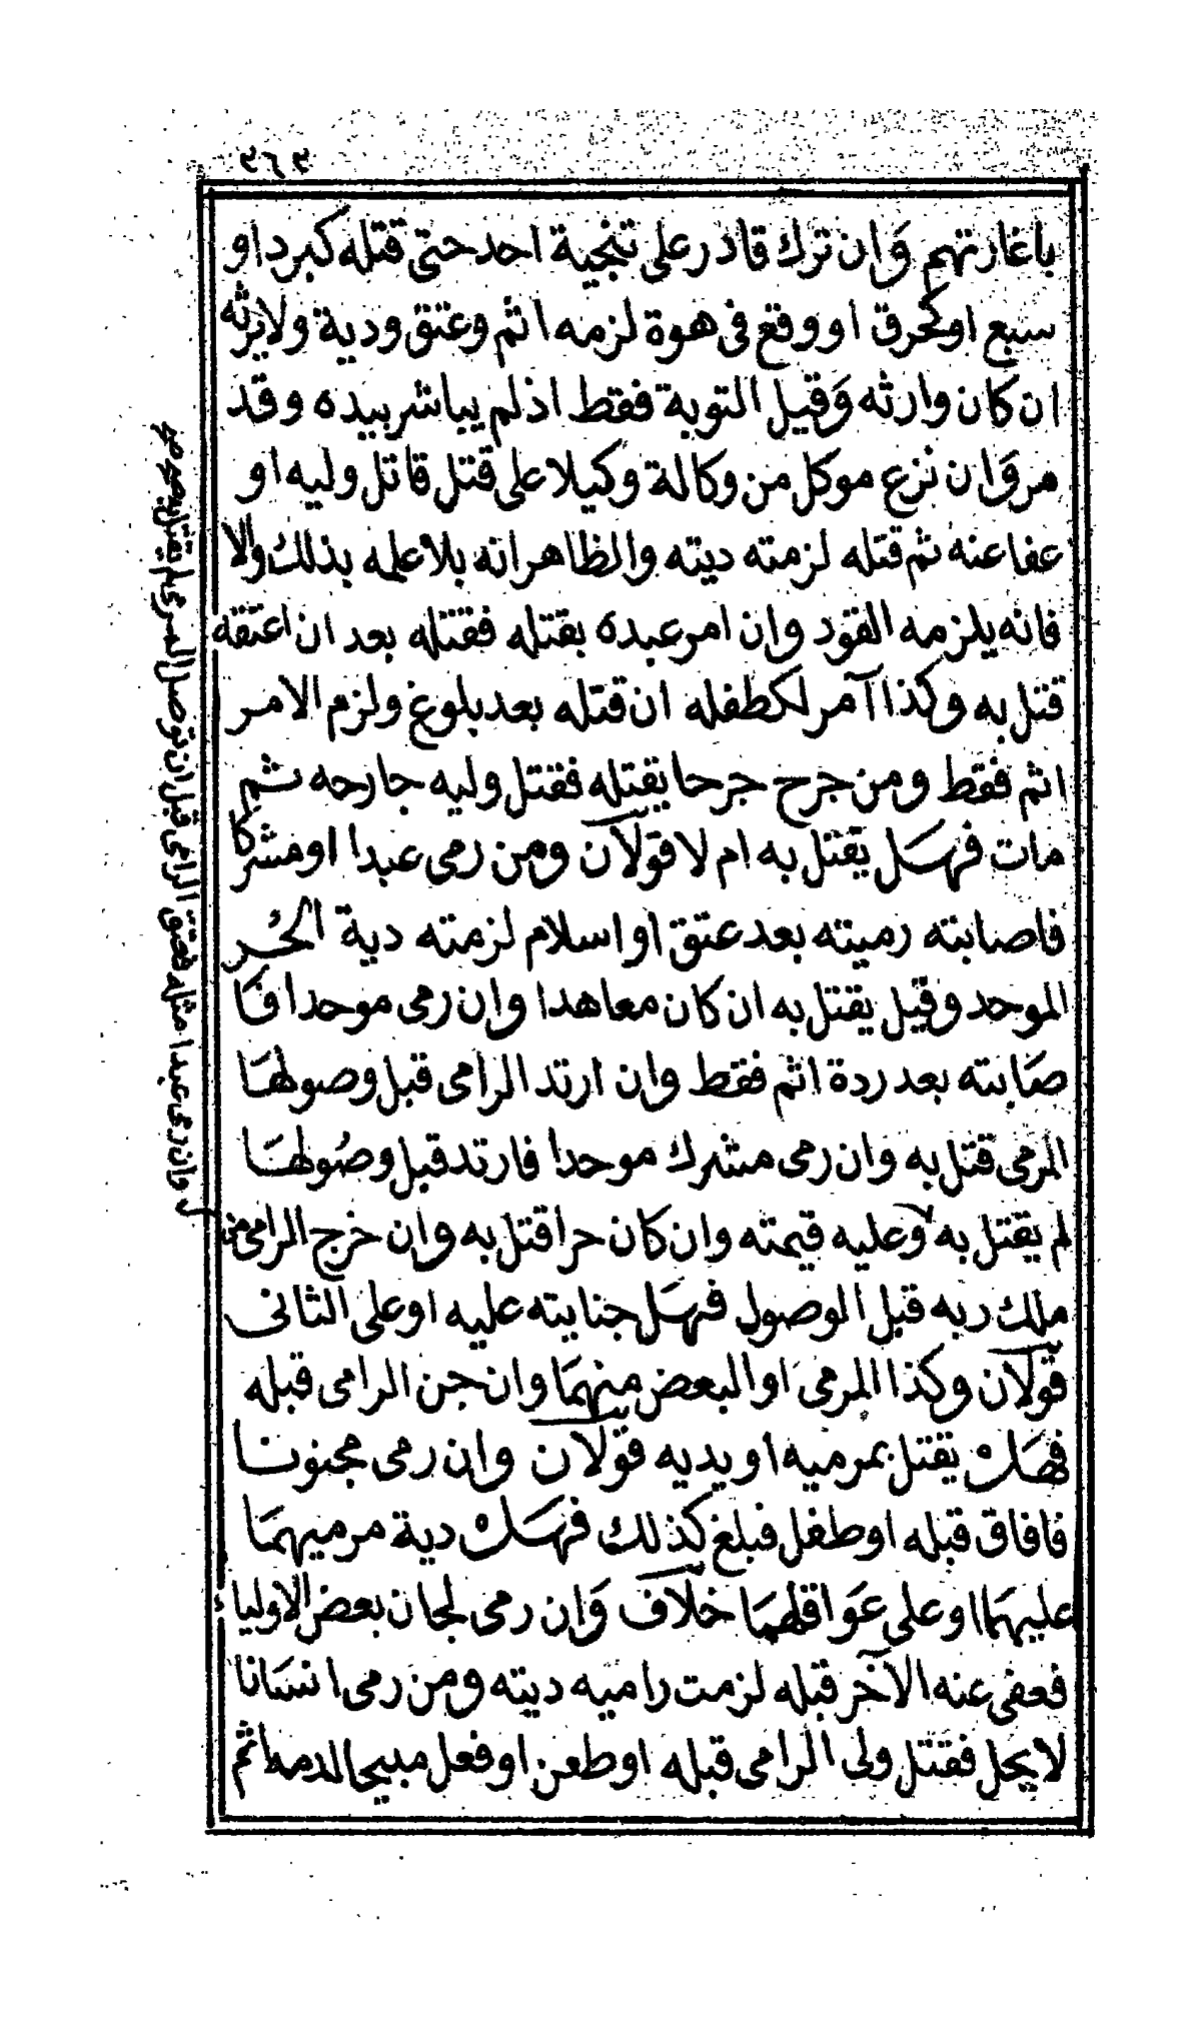 ٣٦٣
باغارتهم وان ترك قادر على تنجية احد حتى قتله كبرد او
سبع او كحرق او وقع فى هوة لزمه اثم وعتق ودية ولا يرثه
ان كان وارثه وقيل التوبة فقط اذ لم يباشر بيده وقد
مر وان نزع موكل من وكالة وكيلا على قتل قاتل وليه او
عفا عنه ثم قتله لزمته ديته والظاهر انه بلا علمه بذلك والا
فانه يلزمه القود وان امر عبده بقتله فقتله بعد ان اعتقه
قتل به وكذا آمر لكطفله ان قتله بعد بلوغ ولزم الامر
اثم فقط ومن جرح جرحا يقتله فقتل وليه جارحه ثم
مات فهل يقتل به ام لا قولان ومن رمى عبدا او مشركا
فاصابته رميته بعد عتق او اسلام لزمته دية الحر
الموحد وقيل يقتل به ان كان معاهدا وان رمى موحدا فا
صابته بعد ردة اثم فقط وان ارتد الرامى قبل وصولها
المرمى قتل به وان رمى مشرك موحدا فارتد قبل وصولها
لم يقتل به وعليه قيمته وان كان حرا قتل به وان خرج الرامى من
ملك ربه قبل الوصول فهل جنايته عليه او على الثانى
قولان وكذا المرمى او البعض منهما وان جن الرامى قبله
فهل يقتل بمرميه او يديه قولان وان رمى مجنونا
فافاق قبله او طفل فبلغ كذلك فهل دية مرميهما
عليهما او على عواقلهما خلاف وان رمى لجان بعض الاولياء
فعفى عنه الآخر قبله لزمت راميه ديته ومن رمى انسانا
لا يحل فقتل ولى الرامى قبله او طعن او فعل مبيحا لدمه اثم
وان رمى عبدا مثله فعتق الرامى قبل ان توصل المرمى لم يقتل به صح صح